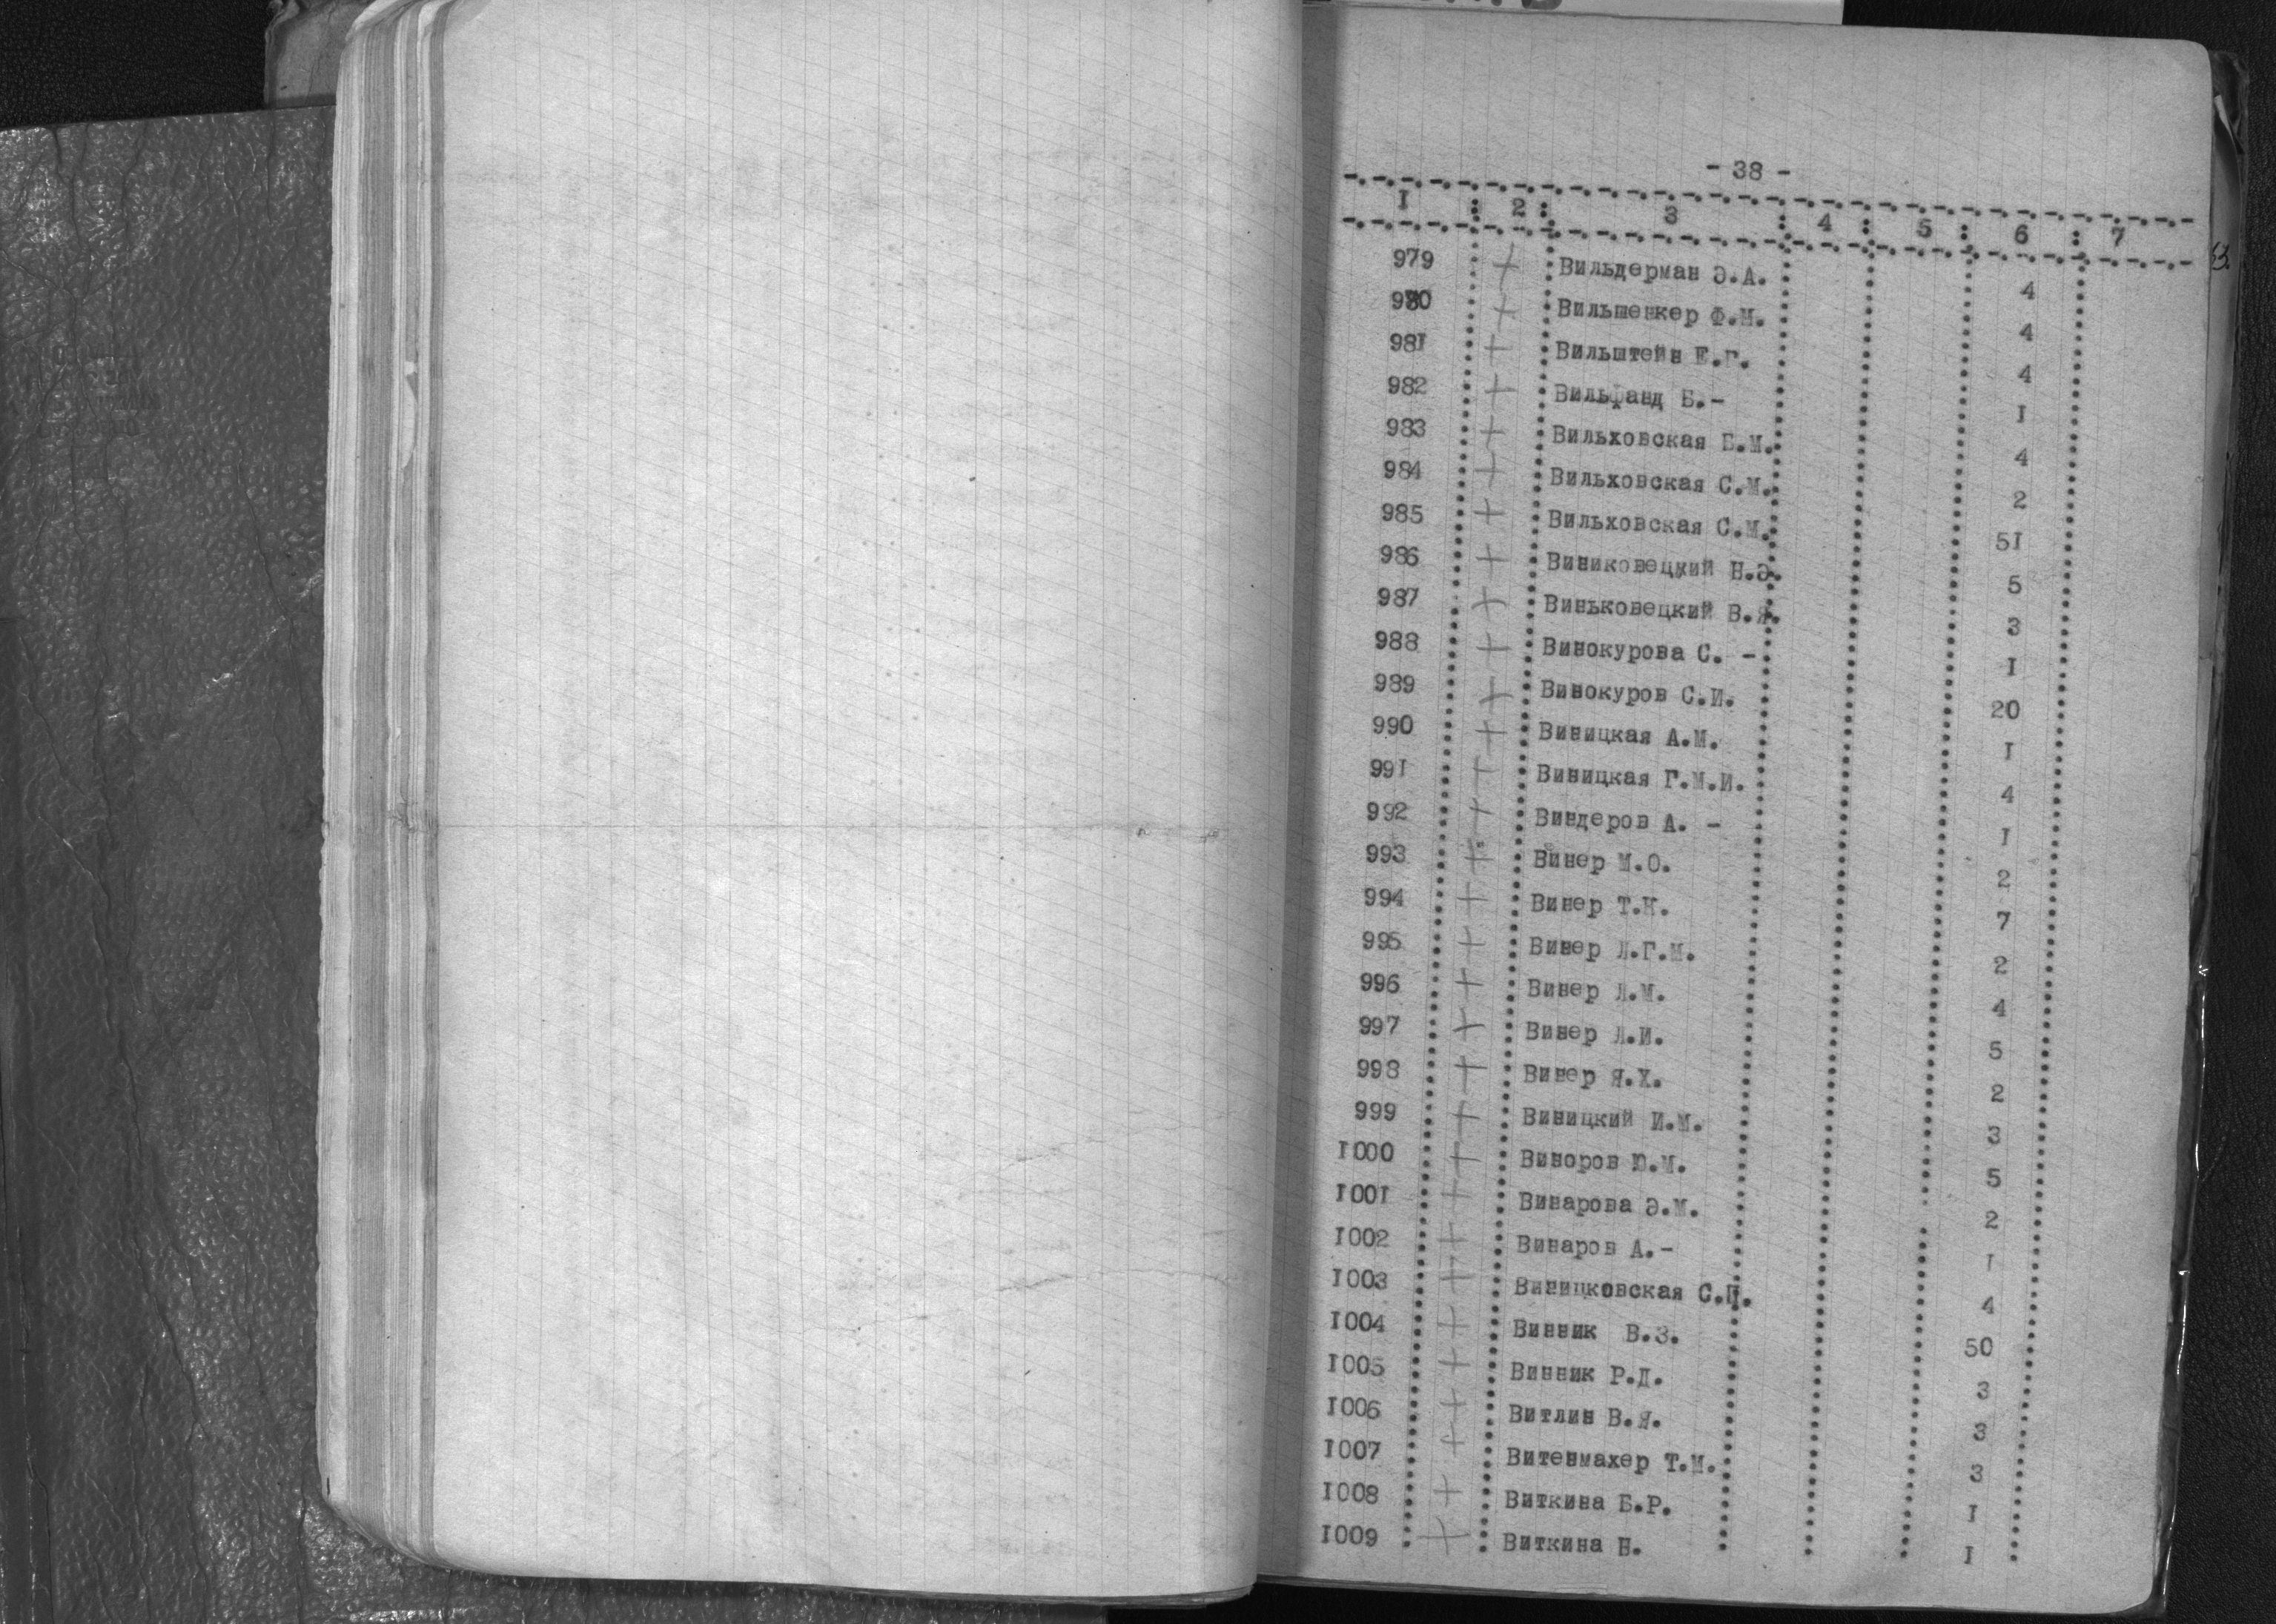 - 38 -
I : 2 : 3 : 4 : 5 : 6 : 7
979 + Вильдерман Э.А. 4
980 + Вильшенкер Ф.М. 4
981 + Вильштейн Е.Г. 4
982 + Вильфанд Б.- I
983 + Вильховская Б.М. 4
984 + Вильховская С.М. 2
985 + Вильховская С.М. 5I
986 + Виниковецкий Н.Э. 5
987 + Виньковецкий В.Я. 3
988 + Винокурова С. - I
989 + Винокуров С.И. 20
990 + Виницкая А.М. I
99I + Виницкая Г.М.И. 4
992 + Виндеров А. - I
993 + Винер М.О. 2
994 + Винер Т.Н. 7
995 + Винер Л.Г.М. 2
996 + Винер Л.М. 4
997 + Винер Л.И. 5
998 + Винер Я.Х. 2
999 + Виницкий И.М. 3
I000 + Виноров Ю.М. 5
I00I + Винарова Э.М. 2
I002 + Винаров А.- I
I003 + Виницковская С.П. 4
I004 + Винник В.З. 50
I005 + Винник Р.Д. 3
I006 + Витлин В.Я. 3
I007 + Витенмахер Т.М. 3
I008 + Виткина Б.Р. I
I009 + Виткина Н. I